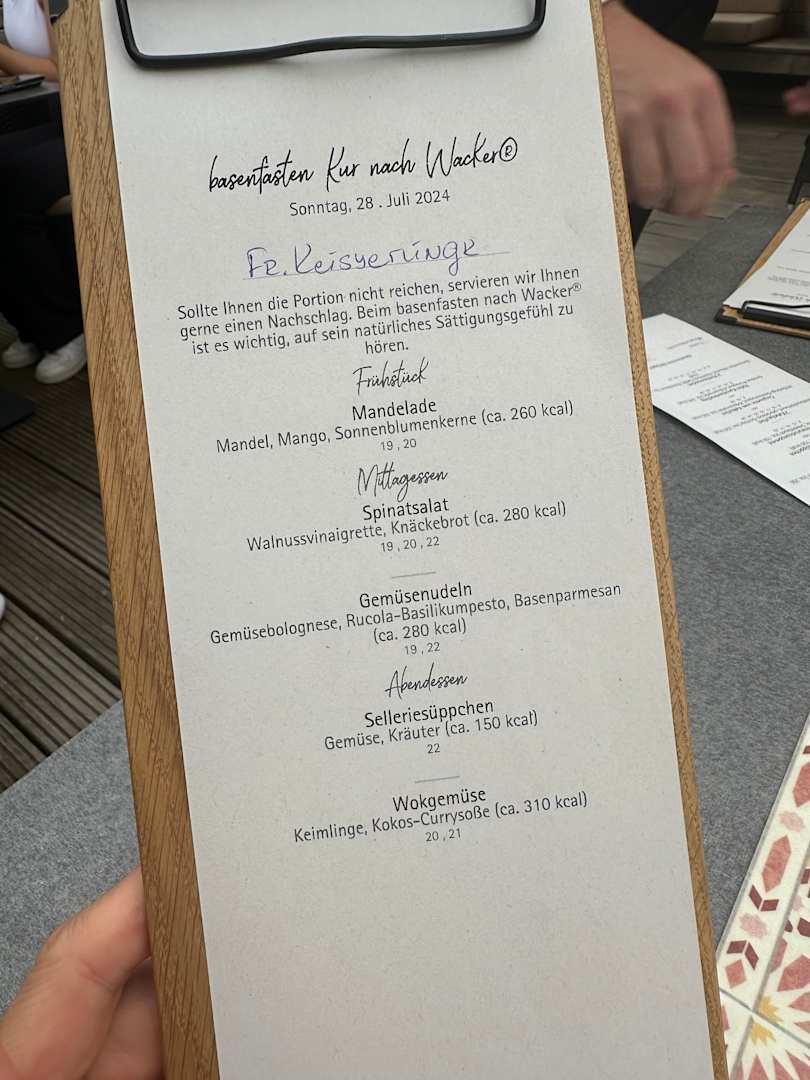 basenfasten Kur nach Wacker®
Sonntag, 28 . Juli 2024
Fr.
Sollte Ihnen die Portion nicht reichen, servieren wir Ihnen
gerne einen Nachschlag. Beim basenfasten nach Wacker®
ist es wichtig, auf sein natürliches Sättigungsgefühl zu
hören.
Frühstück
Mandelade
Mandel, Mango, Sonnenblumenkerne (ca. 260 kcal)
19 , 20
Mittagessen
Spinatsalat
Walnussvinaigrette, Knäckebrot (ca. 280 kcal)
19 , 20 , 22
Gemüsenudeln
Gemüsebolognese, Rucola-Basilikumpesto, Basenparmesan
(ca. 280 kcal)
19 , 22
Abendessen
Selleriesüppchen
Gemüse, Kräuter (ca. 150 kcal)
22
Wokgemüse
Keimlinge, Kokos-Currysoße (ca. 310 kcal)
20 , 21